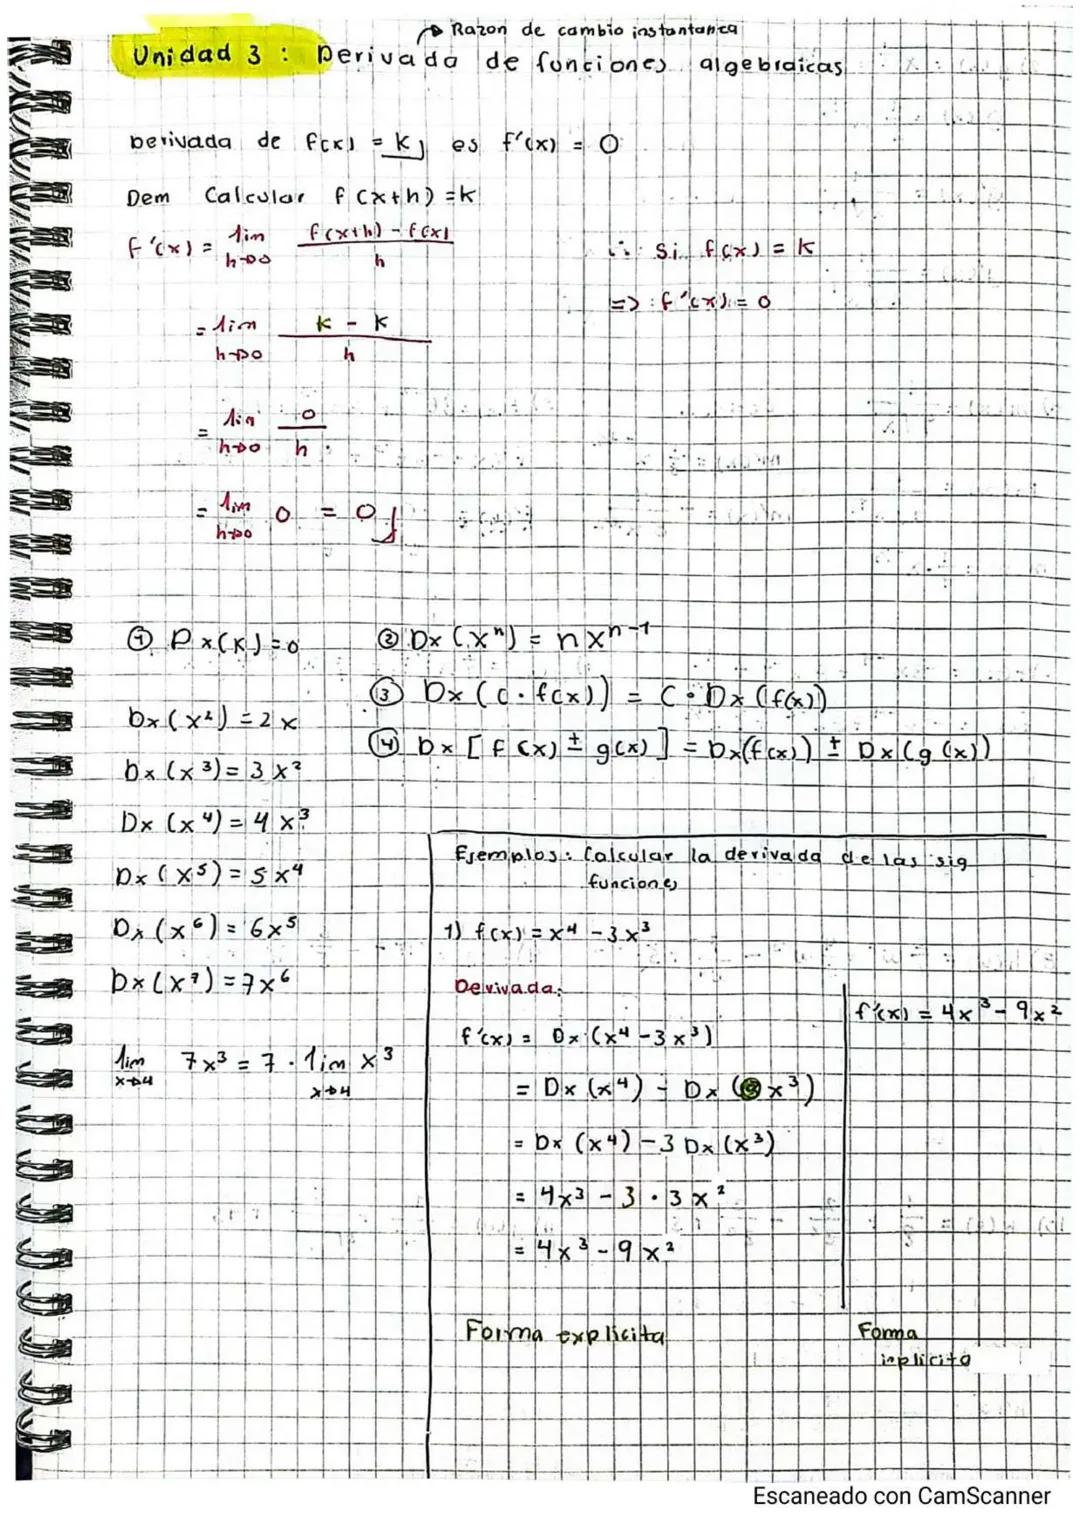 → Razon de cambio instantanea
Unidad 3 : Derivada de funciones algebraicas
Derivada de f(x) = k, es f'(x) = 0
Dem Calcular f(x+h) = k
f'(x) = lim h→0 f(x+h) - f(x) / h
∴ Si f(x) = k
=> f'(x) = 0
= lim h→0 k - k / h
= lim h→0 0 / h
= lim h→0 0 = 0
① Dx(K) = 0
② Dx (x^n) = nx^n-1
③ Dx (c · f(x)) = c · Dx (f(x))
④ Dx [f(x) ± g(x)] = Dx(f(x)) ± Dx(g(x))
Dx (x²) = 2x
Dx (x³) = 3x²
Dx (x⁴) = 4x³
Dx (x⁵) = 5x⁴
Dx (x⁶) = 6x⁵
Dx (x⁷) = 7x⁶
lim x→4 7x³ = 7 · lim x→4 x³
Ejemplos: Calcular la derivada de las sig
funciones
1) f(x) = x⁴ - 3x³
Derivada:
f'(x) = Dx (x⁴ - 3x³)
= Dx (x⁴) - Dx (3x³)
= Dx (x⁴) - 3 Dx (x³)
= 4x³ - 3 · 3x²
= 4x³ - 9x²
Forma explicita
f'(x) = 4x³ - 9x²
Forma
inplicita
Escaneado con CamScanner